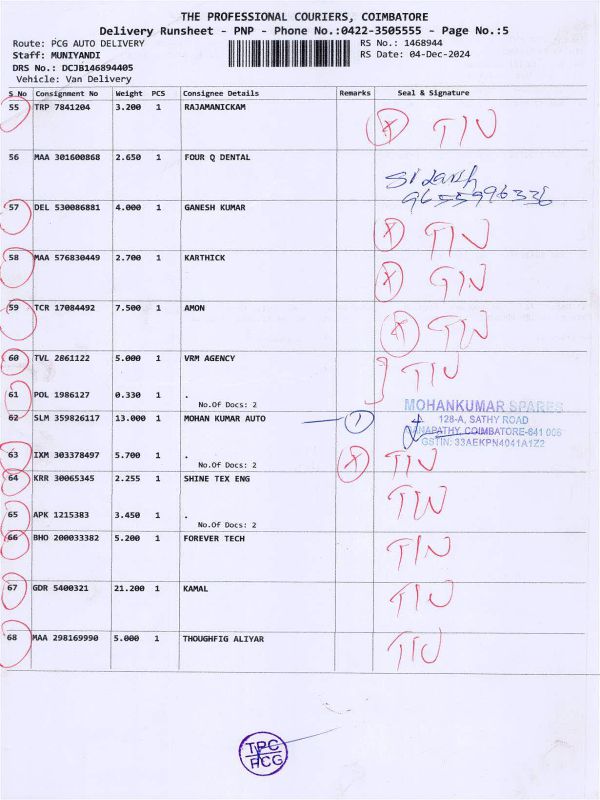 THE PROFESSIONAL COURIERS, COIMBATORE
Delivery Runsheet - PNP - Phone No.:0422-3505555 - Page No.:5
Route: PCG AUTO DELIVERY RS No.: 1468944
Staff: MUNIYANDI RS Date: 04-Dec-2024
DRS No.: DCJB146894405
Vehicle: Van Delivery
S No Consignment No Weight PCS Consignee Details Remarks Seal & Signature
55 TRP 7841204 3.200 1 RAJAMANICKAM X TIN
56 MAA 301600868 2.650 1 FOUR Q DENTAL
9655996336
57 DEL 530086881 4.000 1 GANESH KUMAR X TIN
58 MAA 576830449 2.700 1 KARTHICK X TIN
59 TCR 17084492 7.500 1 AMON X TIN
60 TVL 2861122 5.000 1 VRM AGENCY TIN
61 POL 1986127 0.330 1 .
No.Of Docs: 2
MOHANKUMAR SPARES
62 SLM 359826117 13.000 1 MOHAN KUMAR AUTO 1 128-A, SATHY ROAD
GANAPATHY, COIMBATORE-641 006
GSTIN: 33AEKPN4041A1Z2
63 IXM 303378497 5.700 1 . X TIN
No.Of Docs: 2
64 KRR 30065345 2.255 1 SHINE TEX ENG TIN
65 APK 1215383 3.450 1 .
No.Of Docs: 2
66 BHO 200033382 5.200 1 FOREVER TECH TIN
67 GDR 5400321 21.200 1 KAMAL TIN
68 MAA 298169990 5.000 1 THOUGHFIG ALIYAR TIN
TPC
PCG